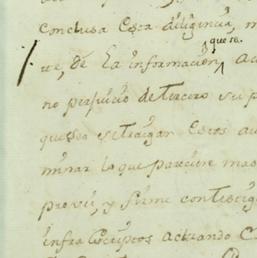 Conclusa Esta diligencia, m
que se.
re, de La informacion, ac
no perjuicio de tercero su p
queso se traigan Estos au
minar lo que pareciere mas
provei, y firme con testig
infra escriptos actuando C